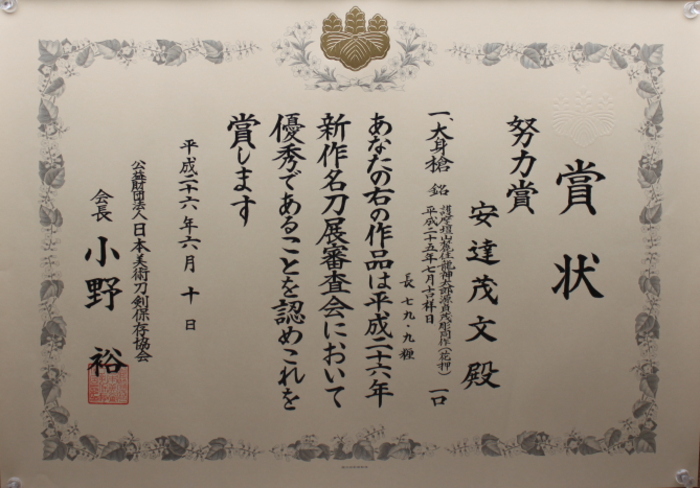 賞状
努力賞
安達茂文殿
一、大身槍 銘 護摩壇山麓住龍神太郎源貞茂彫同作(花押) 一口
平成二十五年七月吉祥日
長 七九・九糎
あなたの右の作品は平成二十六年
新作名刀展審査会において
優秀であることを認めこれを
賞します
平成二十六年六月十日
公益財団法人日本美術刀剣保存協会
会長 小野裕